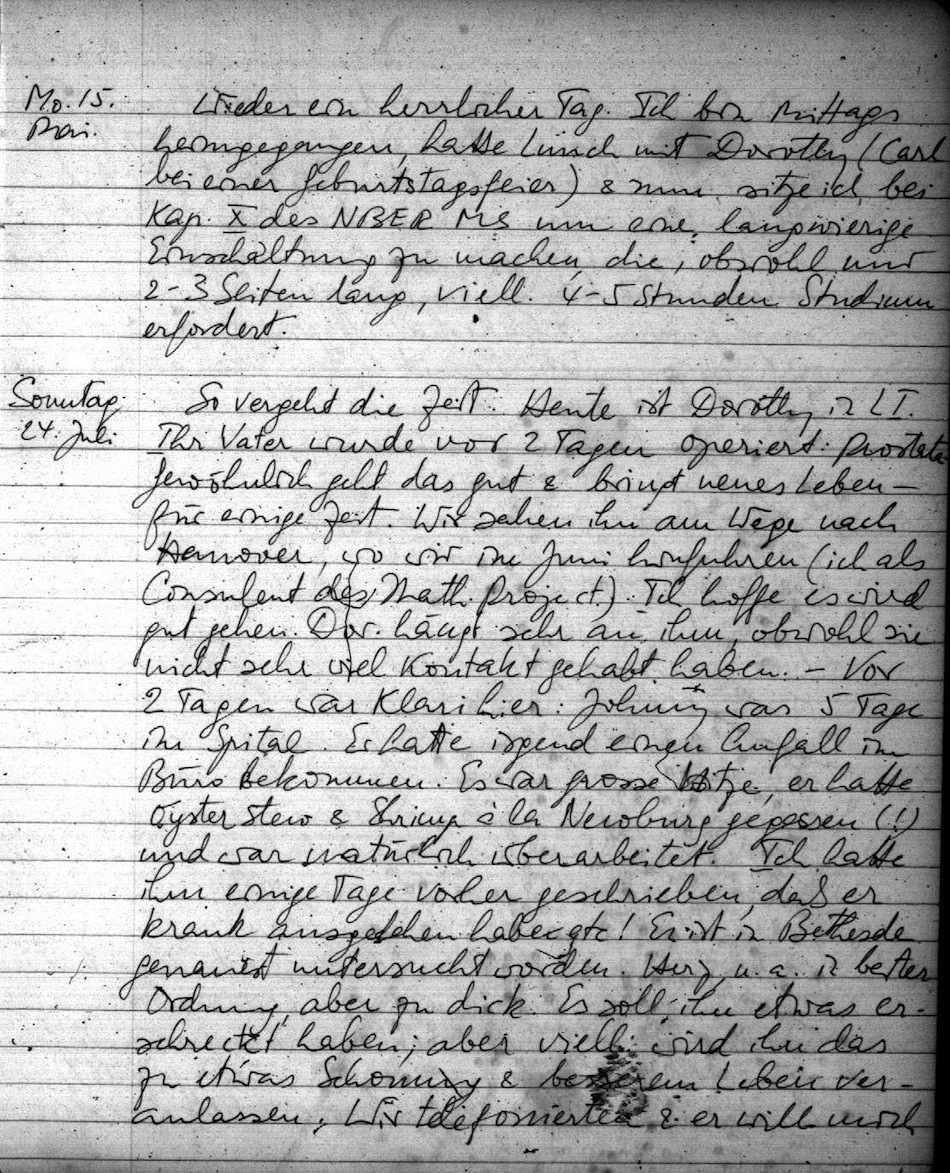 Mo. 15. Wieder ein herrlicher Tag. Ich bin Mittags
Mai. heimgegangen, hatte Lunch mit Dorothy (Carl
bei einer Geburtstagsfeier) & nun sitze ich bei
Kap. X des NBER MS um eine langwierige
Einschaltung zu machen, die, obwohl nur
2-3 Seiten lang, viell. 4-5 Stunden Studium
erfordert.
Sonntag So vergeht die Zeit. Heute ist Dorothy in LI.
24. Juli Ihr Vater wurde vor 2 Tagen operiert: Prostata
Gewöhnlich geht das gut & bringt neues Leben –
für einige Zeit. Wir sahen ihn am Wege nach
Hannover, wo wir im Juni hinfuhren (ich als
Consulent des Math. Project.) Ich hoffe es wird
gut gehen. Dor. hängt sehr an ihm, obwohl sie
nicht sehr viel Kontakt gehabt haben. – Vor
2 Tagen war Klari hier: Johnny war 5 Tage
im Spital. Er hatte irgend einen Anfall im
Büro bekommen. Es war grosse Hitze, er hatte
Oyster Stew & Shrimp à la Newburg gegessen (!)
und war natürlich überarbeitet. Ich hatte
ihm einige Tage vorher geschrieben, daß er
krank ausgesehen habe etc! Er ist in Bethesde
genauest untersucht worden. Herz u. a. in bester
Ordnung, aber zu dick. Es soll ihn etwas er-
schreckt haben; aber viell. wird ihn das
zu etwas Schonung & besserem Leben ver-
anlassen. Wir telefonierten & er will mich